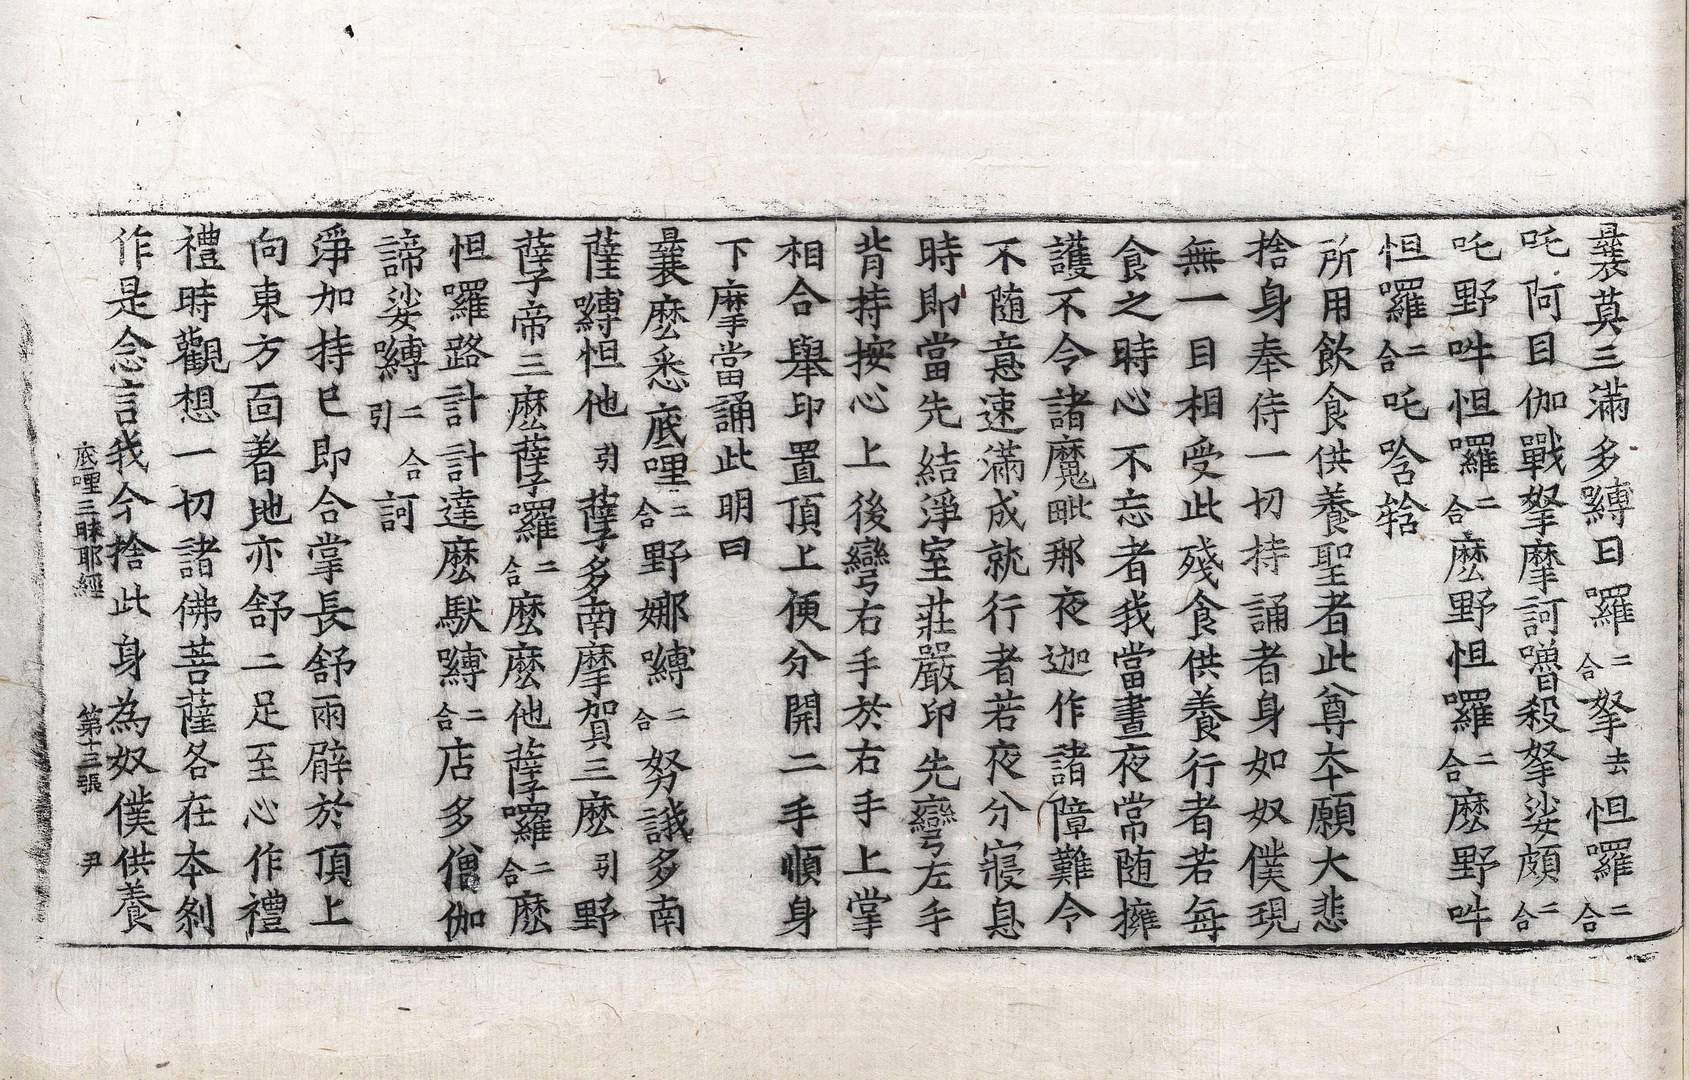 曩莫三滿多嚩日囉二合拏去怛囉二合
吒阿目伽戰拏摩訶嚕殺拏娑頗二合
吒野吽怛囉二合麽野怛囉二合麽野吽
怛囉二合吒唅𤚥
所用飲食供養聖者此尊夲願大悲
捨身奉侍一切持誦者身如奴僕現
無一目相受此殘食供養行者若每
食之時心不忘者我當晝夜常随擁
護不令諸魔毗那夜迦作諸障難令
不随意速滿成就行者若夜分寢息
時即當先結淨室莊嚴印先彎左手
背持按心上後彎右手於右手上掌
相合舉印置頂上便分開二手順身
下摩當誦此明曰
曩麽悉底哩二合野娜嚩二合努誐多南
薩嚩怛他引蘖多南摩賀三麽引野
薩帝三麽孽囉二合麽麽他孽囉二合麽
怛囉路計計達麽馱嚩二合店多僧伽
諦娑嚩二合引訶
淨加持已即合掌長舒兩臂於頂上
向東方面著地亦舒二足至心作禮
禮時觀想一切諸佛菩薩各在夲剎
作是念言我今捨此身為奴僕供養
底哩三昧耶經 第十三張 尹